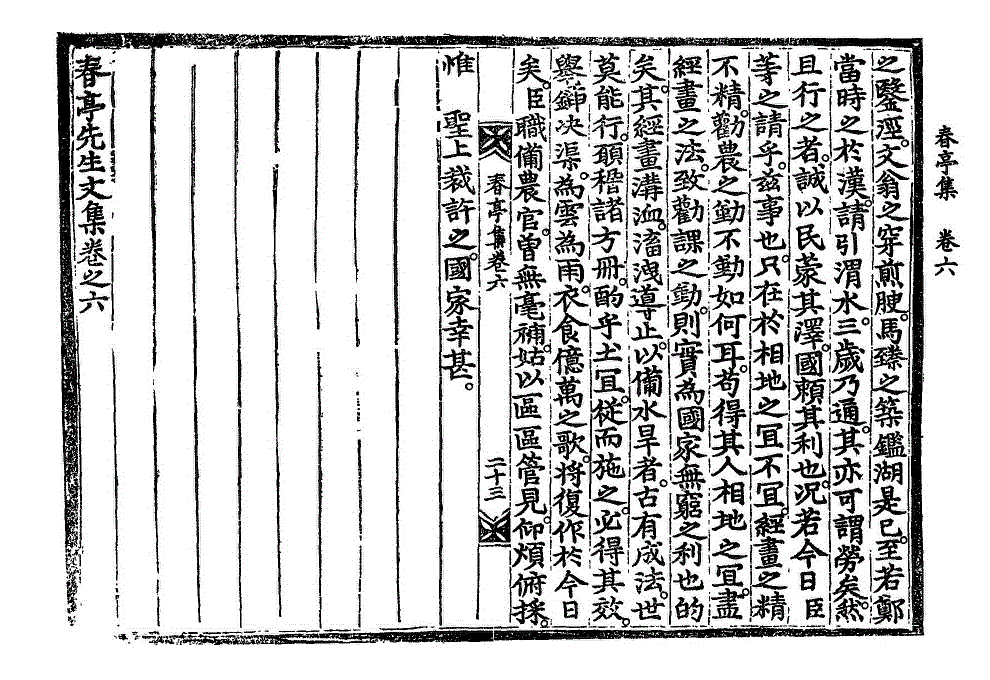 春亭集 卷六
之鑿涇。文翁之穿煎䏰。馬臻之築鑑湖是已。至若鄭
當時之於漢。請引渭水。三歲乃通。其亦可謂勞矣。然
且行之者。誠以民蒙其澤。國賴其利也。況若今日臣
等之請乎。玆事也。只在於相地之宜不宜。經畫之精
不精。勸農之勤不勤如何耳。苟得其人相地之宜。盡
經畫之法。致勸課之勤。則實爲國家無窮之利也的
矣。其經畫溝洫。滀洩導止。以備水旱者。古有成法。世
莫能行。願稽諸方冊。酌乎土宜。從而施之。必得其效。
擧鍤决渠。爲雲爲雨。衣食億萬之歌。將復作於今日
矣。臣職備農官。曾無毫補。姑以區區管見。仰煩俯採。
春亭集卷六 二十三
惟 聖上裁許之。國家幸甚。
春亭先生文集卷之六